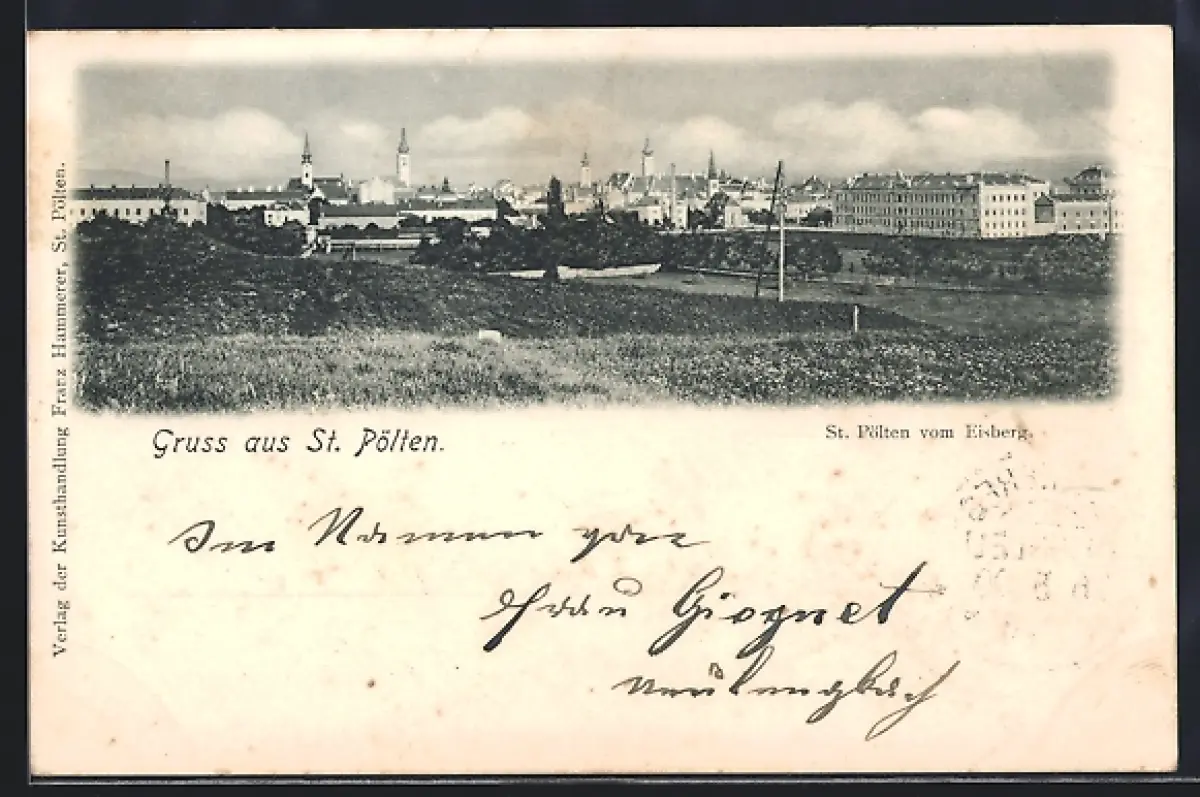 Verlag der Kunsthandlung Franz Hammerer, St. Pölten.
Gruss aus St. Pölten.
St. Pölten vom Eisberg.
Im Namen von
Frau Giognet
Neulengbach